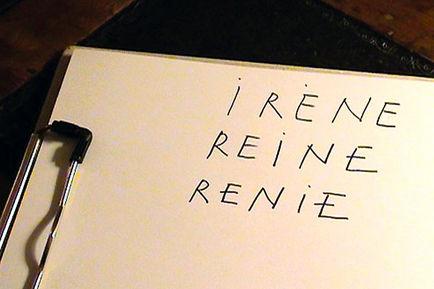 IRÈNE
REINE
RENIE